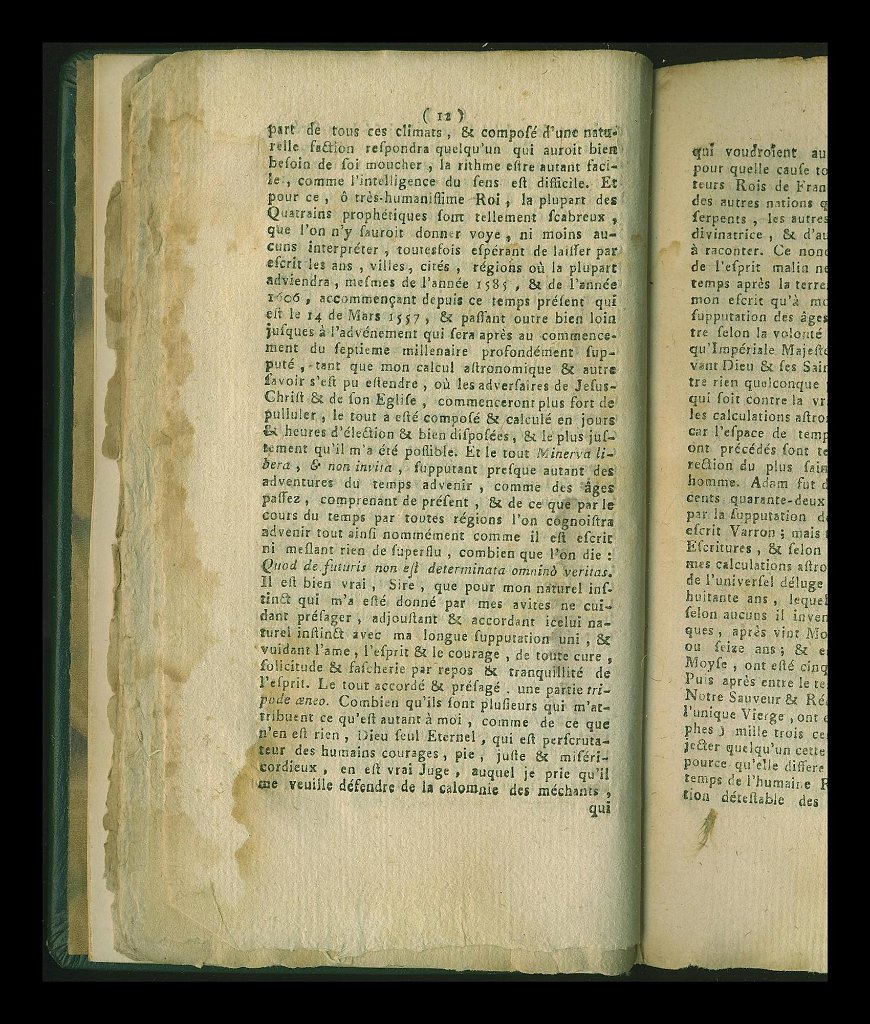 ( 12 )
part de tous ces climats , & compoſé d'une natu-
relle faction reſpondra quelqu'un qui auroit bien
beſoin de ſoi moucher , la rithme eſtre autant faci-
le , comme l'intelligence du ſens eſt difficile. Et
pour ce , ô très-humaniſſime Roi , la plupart des
Quatrains prophétiques ſont tellement ſcabreux ,
que l'on n'y ſauroit donner voye , ni moins au-
cuns interpréter , toutesfois eſpérant de laiſſer par
eſcrit les ans , villes , cités , régions où la plupart
adviendra , meſmes de l'année 1585 , & de l'année
1606 , accommençant depuis ce temps préſent qui
eſt le 14 de Mars 1557 , & paſſant outre bien loin
juſques à l'advénement qui ſera après au commence-
ment du ſeptieme millenaire profondément ſup-
puté , tant que mon calcul aſtronomique & autre
ſavoir s'eſt pu eſtendre , où les adverſaires de Jeſus-
Chriſt & de ſon Egliſe , commenceront plus fort de
pulluler , le tout a eſté compoſé & calculé en jours
& heures d'élection & bien diſpoſées , & le plus juſ-
tement qu'il m'a été poſſible. Et le tout Minerva li-
bera , & non invita , ſupputant preſque autant des
adventures du temps advenir , comme des âges
paſſez , comprenant de préſent , & de ce que par le
cours du temps par toutes régions l'on cognoiſtra
advenir tout ainſi nommément comme il eſt eſcrit
ni meſlant rien de ſuperflu , combien que l'on die :
Quod de futuris non eſt determinata omninò veritas.
Il eſt bien vrai , Sire , que pour mon naturel inſ-
tinct qui m'a eſté donné par mes avites ne cui-
dant préſager , adjouſtant & accordant icelui na-
turel inſtinct avec ma longue ſupputation uni , &
vuidant l'ame , l'eſprit & le courage , de toute cure ,
ſolicitude & faſcherie par repos & tranquillité de
l'eſprit. Le tout accordé & préſagé . une partie tri-
pode æneo. Combien qu'ils ſont pluſieurs qui m'at-
tribuent ce qu'eſt autant à moi , comme de ce que
n'en eſt rien , Dieu ſeul Eternel , qui eſt perſcruta-
teur des humains courages , pie , juſte & miſéri-
cordieux , en eſt vrai Juge , auquel je prie qu'il
me veuille défendre de la calomnie des méchants ,
qui
qui voudroient au
pour quelle cauſe to
teurs Rois de Fran
des autres nations q
ſerpents , les autres
divinatrice , & d'au
à raconter. Ce non
de l'eſprit malin ne
temps après la terre
mon eſcrit qu'à mo
ſupputation des âges
tre ſelon la volonté
qu'Impériale Majeſté
vant Dieu & ſes Sain
tre rien quelconque
qui ſoit contre la vr
les calculations aſtro
car l'eſpace de temp
ont précédés ſont te
rection du plus ſain
homme. Adam fut d
cents quarante-deux
par la ſupputation d
eſcrit Varron ; mais
Eſcritures , & ſelon
mes calculations aſtro
de l'univerſel déluge
huitante ans , lequel
ſelon aucuns il inven
ques , après vint Mo
ou ſeize ans ; & e
Moyſe , ont eſté cinq
Puis après entre le te
Notre Sauveur & Ré
l'unique Vierge , ont é
phes ) mille trois ce
jecter quelqu'un cette
pource qu'elle differe
temps de l'humaine R
tion déteſtable des